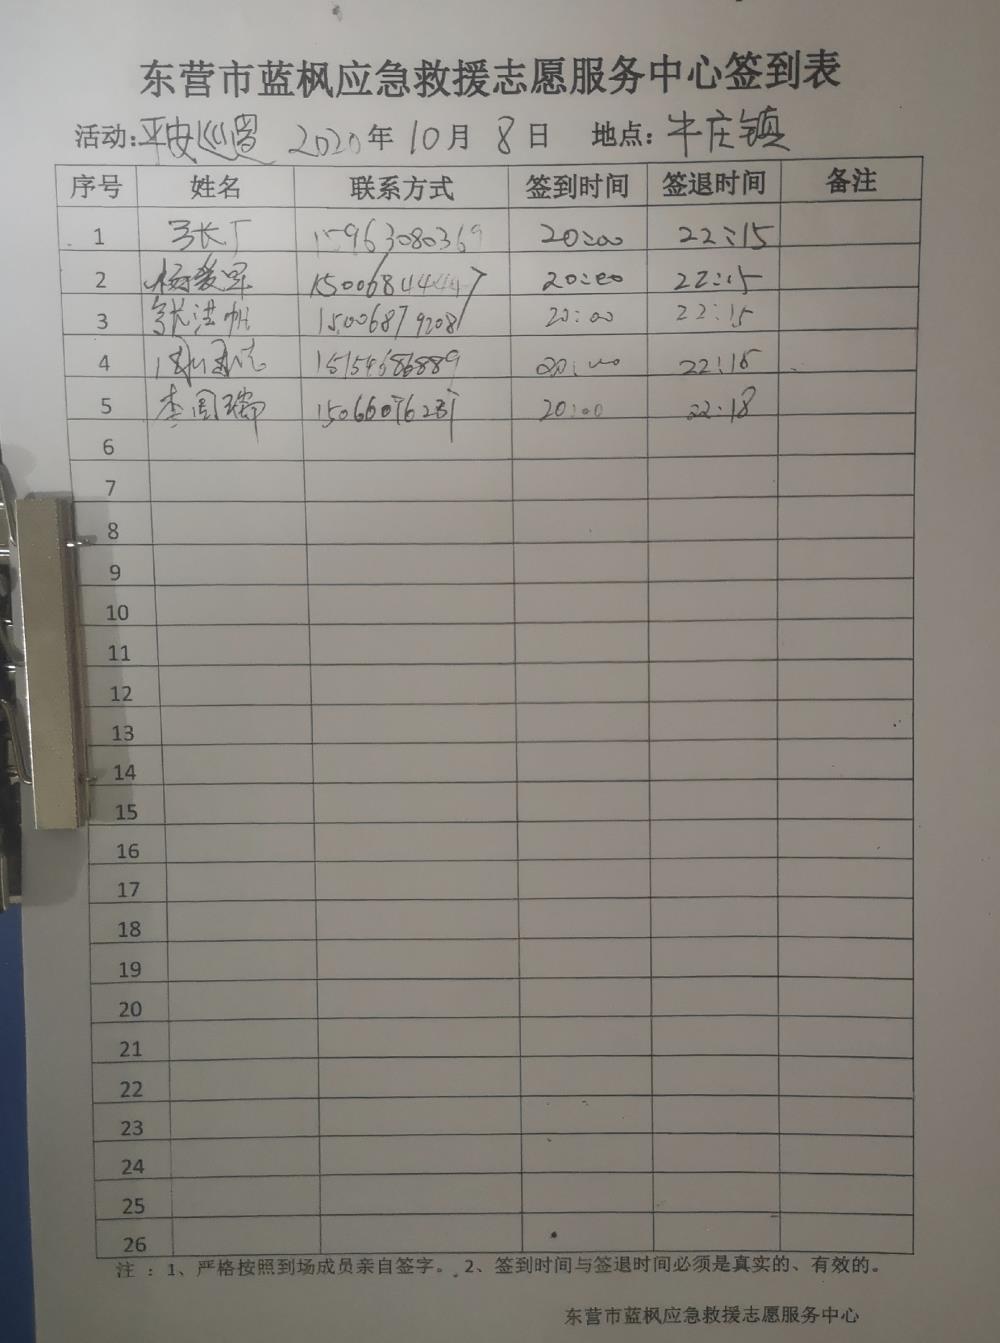 东营市蓝枫应急救援志愿服务中心签到表
活动:平安巡逻 2020年10月8日 地点:牛庄镇
序号 姓名 联系方式 签到时间 签退时间 备注
1 15963080369 20:00 22:15
2 20:00 22:15
3 张洪帆 15006879208 20:00 22:15
4 15154686889 20:00 22:18
5 李国瑞 20:00 22:18
6
7
8
9
10
11
12
13
14
15
16
17
18
19
20
21
22
23
24
25
26
注：1、严格按照到场成员亲自签字。2、签到时间与签退时间必须是真实的、有效的。
东营市蓝枫应急救援志愿服务中心